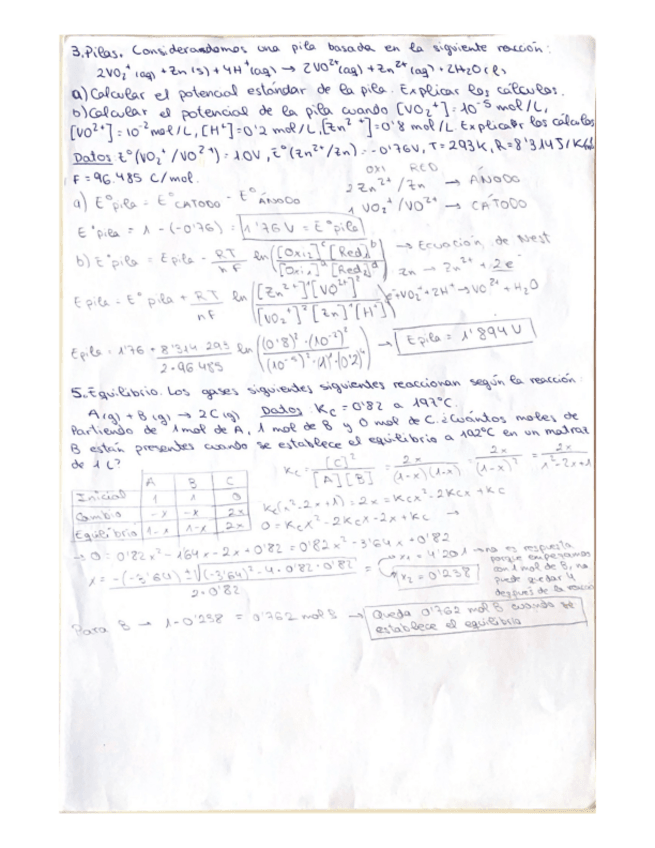 3. Pilas. Considerandomos una pila basada en la siguiente reacción:
2VO₂⁺(aq) + Zn(s) + 4H⁺(aq) → 2VO²⁺(aq) + Zn²⁺(aq) + 2H₂O(l)
a) Calcular el potencial estándar de la pila. Explicar los cálculos.
b) Calcular el potencial de la pila cuando [VO₂⁺] = 10⁻⁵ mol/L,
[VO²⁺] = 10⁻² mol/L, [H⁺] = 0'2 mol/L, [Zn²⁺] = 0'8 mol/L. Explicar los cálculos
Datos E°(VO₂⁺/VO²⁺) = 1.0V, E°(Zn²⁺/Zn) = -0'76V, T = 293K, R = 8'314 J/K
F = 96.485 C/mol.
OXI RED
2 Zn²⁺/Zn → ÁNODO
1 VO₂⁺/VO²⁺ → CÁTODO
a) E°pila = E°CATODO - E°ÁNODO
E°pila = 1 - (-0'76) = 1'76 V = E°pila
b) E°pila = Epila - RT/nF ln([Oxi₂]ᶜ[Red₁]ᵇ/[Oxi₁]ᵃ[Red₂]ᵈ) → Ecuación de Nest
Zn → Zn²⁺ + 2e⁻
Epila = E°pila + RT/nF ln([Zn²⁺]¹[VO²⁺]²/[VO₂⁺]²[Zn]¹[H⁺]⁴) e⁻+VO₂⁺+2H⁺→VO²⁺+H₂O
Epila = 1'76 + 8'314·293/2·96485 ln((0'8)¹·(10⁻²)²/(10⁻⁵)²·(1)¹·(0'2)⁴) → Epila = 1'894 V
5. Equilibrio. Los gases siguientes siguientes reaccionan según la reacción:
A(g) + B(g) → 2C(g) Datos Kc = 0'82 a 197°C.
Partiendo de 1mol de A, 1 mol de B y 0 mol de C. ¿Cuántos moles de
B están presentes cuando se establece el equilibrio a 192°C en un matraz
de 1L?
A B C
Inicial 1 1 0
Cambio -x -x 2x
Equilibrio 1-x 1-x 2x
Kc = [C]²/[A][B] = 2x/(1-x)(1-x) = 2x/(1-x)² = 2x/x²-2x+1
Kc(x²-2x+1) = 2x = Kcx²-2Kcx+Kc
0 = Kcx²-2Kcx-2x+Kc →
→ 0 = 0'82x² - 1'64x - 2x + 0'82 = 0'82x² - 3'64x + 0'82
x = -(-3'64) ± √(-3'64)² - 4·0'82·0'82 / 2·0'82 =
x₁ = 4'201 → no es respuesta
porque empezamos
con 1mol de B, no
puede quedar 4
después de la reacción
x₂ = 0'238
Para B → 1-0'238 = 0'762 mol B → Queda 0'762 mol B cuando se
establece el equilibrio